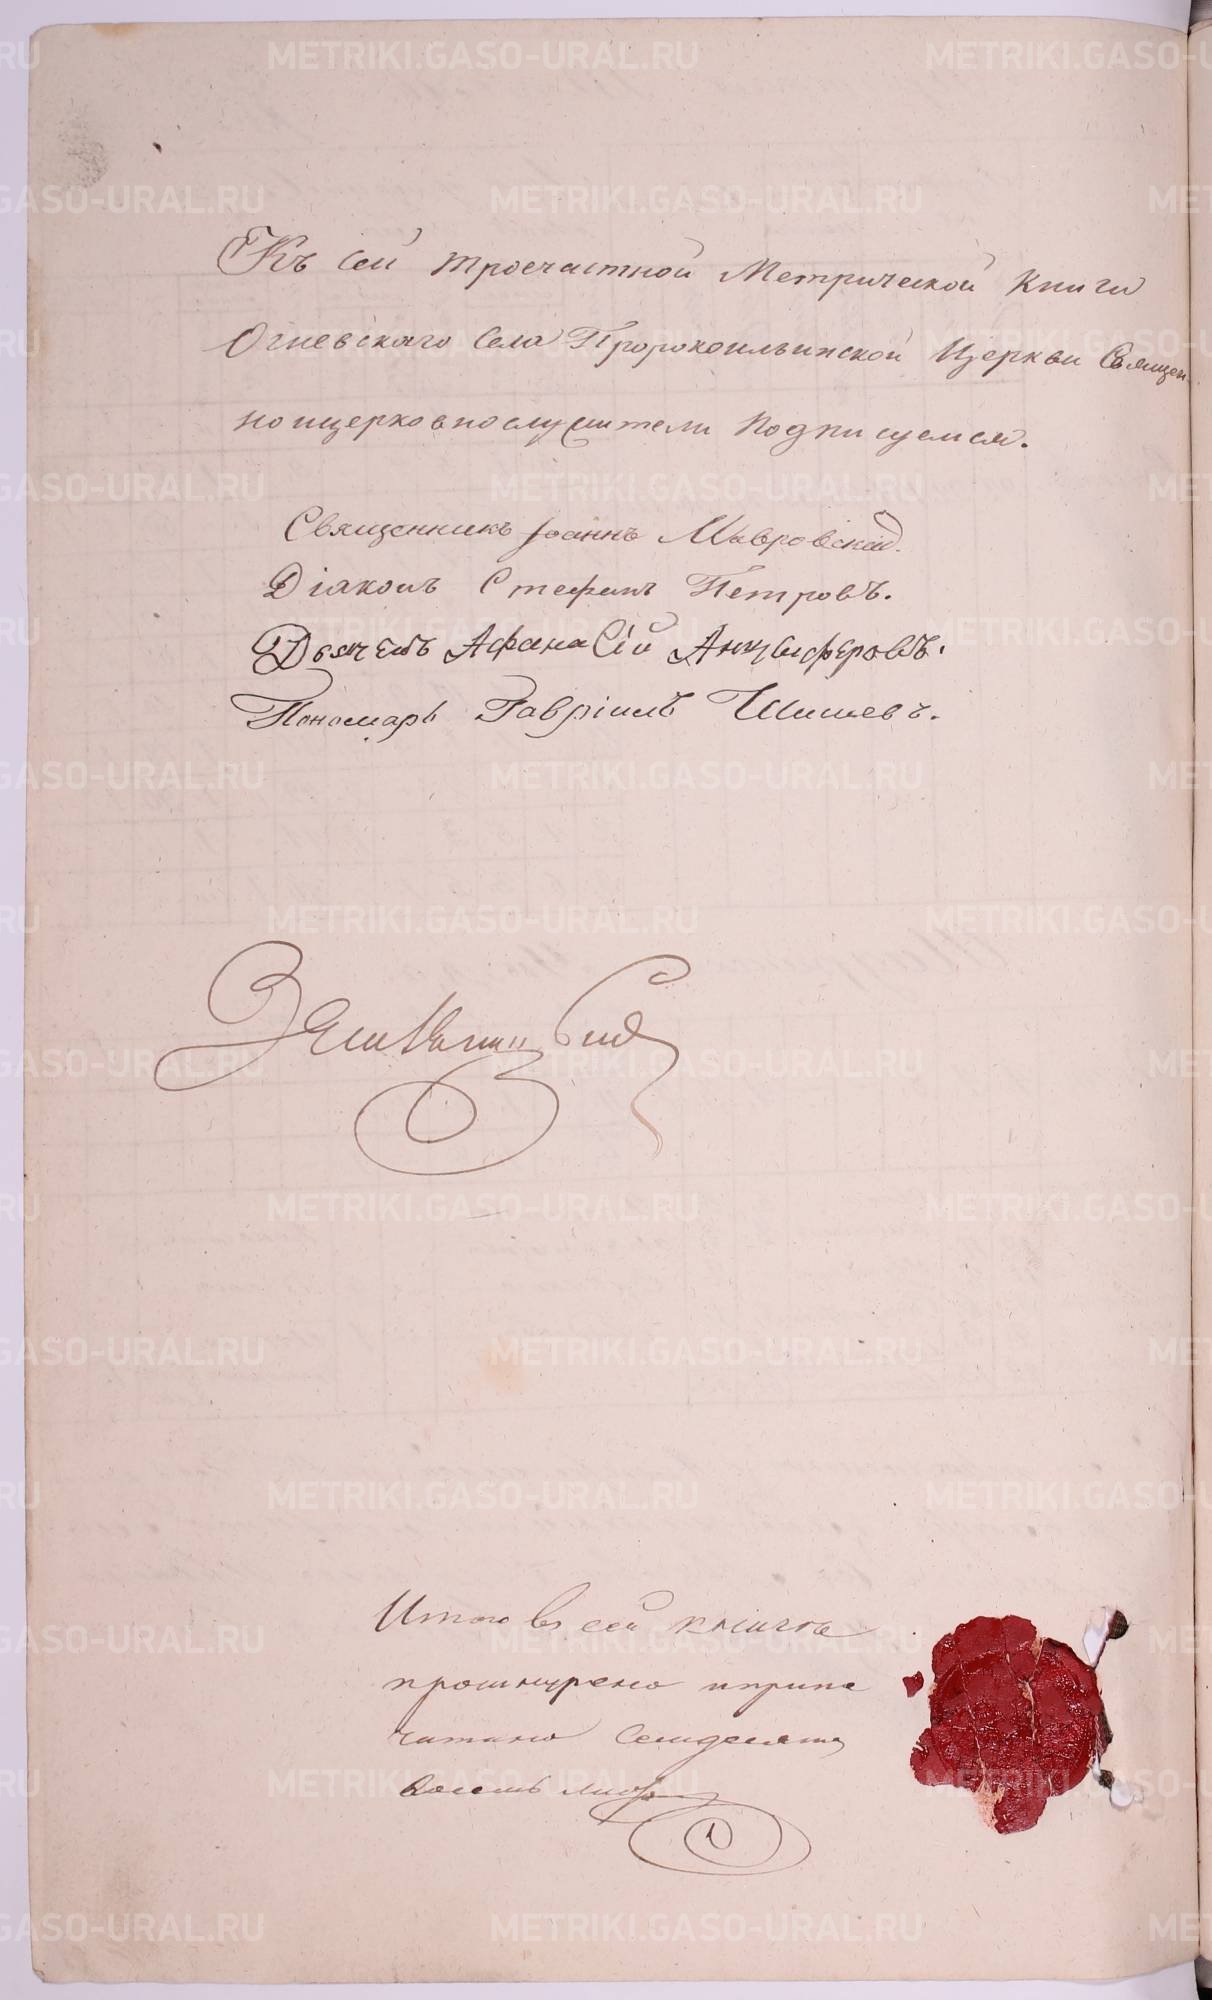 Къ сей троечастной Метрической Книги
Огневскаго Села Пророкоильинской Церкви Священ-
ноицерковнослужители Подписуемся.
Священникъ Іоаннъ Мавровскій.
Діаконъ Стефанъ Петровъ.
Дьячекъ Афанасій Анцыферовъ.
Пономарь Гавріилъ Шишевъ.
Итого въ сей книгѣ
прошнурено иприпе
чатано Семдесятъ
восемь листовъ
METRIKI.GASO-URAL.RU